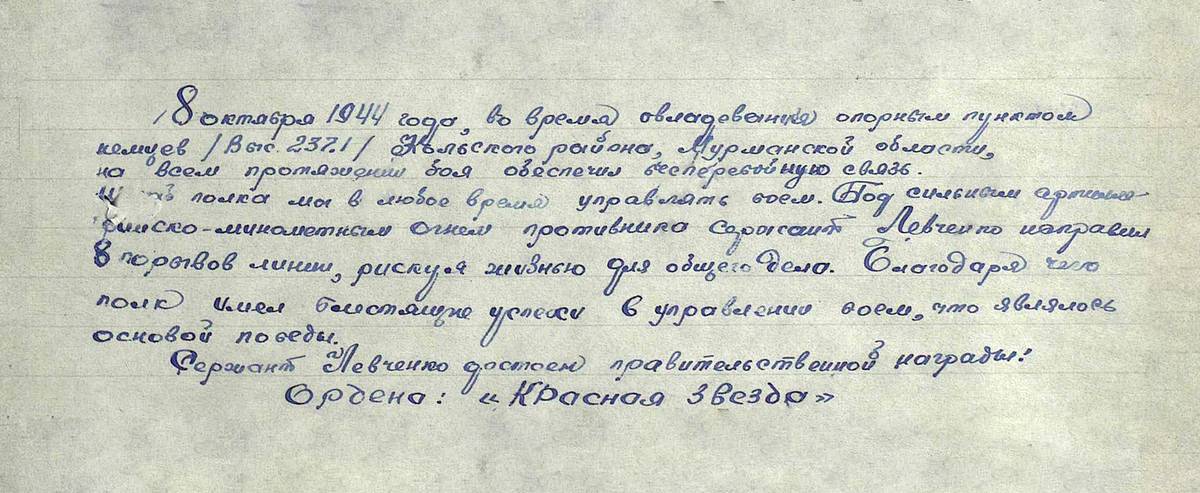 8 октября 1944 года, во время овладевания опорным пунктом
немцев /Выс. 237.1/ Кольского района, Мурманской области,
на всем протяжении боя обеспечил бесперебойную связь.
полка мог в любое время управлять боем. Под сильным артилле-
рийско-минометным огнем противника сержант Левченко исправил
8 порывов линии, рискуя жизнью для общего дела. Благодаря чего
полк имел блестящие успехи в управлении боем, что являлось
основой победы.
Сержант Левченко достоен правительственной награды:
Ордена: «Красная Звезда»